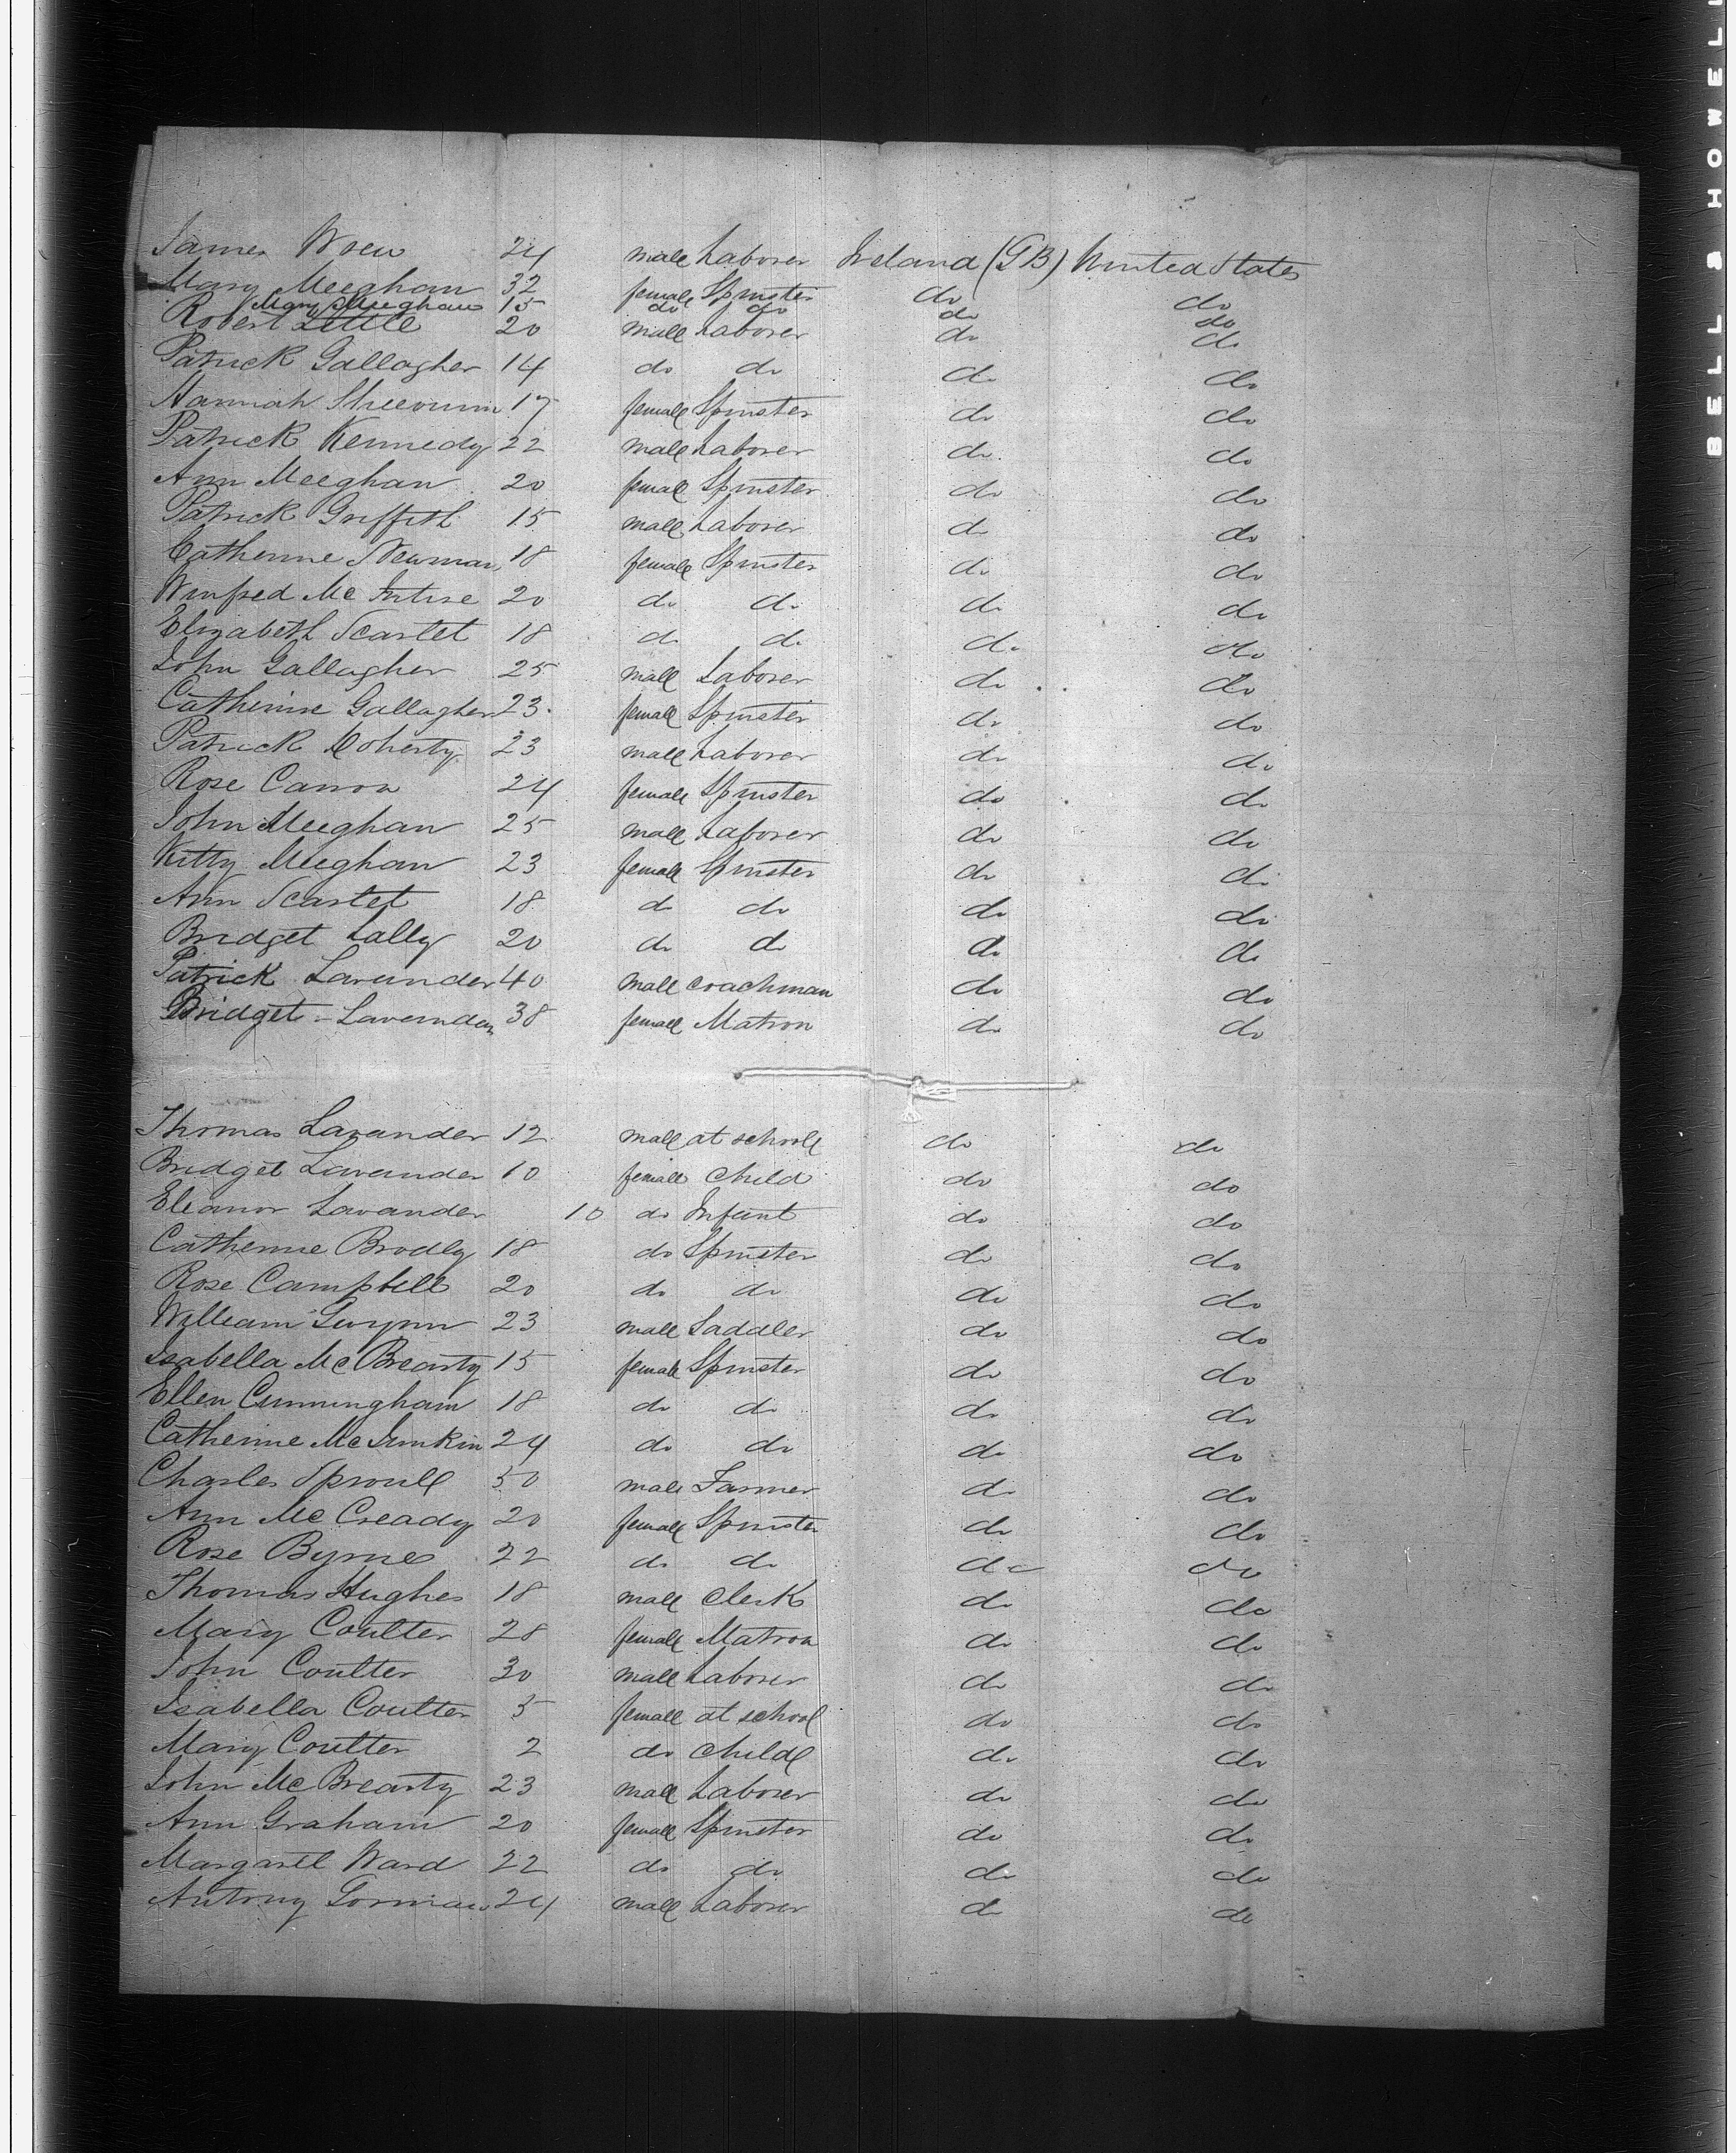 James Wren 24 male Laborer Ireland (GB) United States
Mary Meeghan 32 female Spinster do do
Mary Meeghan 15 do do do do
Robert Little 20 male Laborer do do
Patrick Gallagher 14 do do do do
Hannah 17 female Spinster do do
Patrick Kennedy 22 male Laborer do do
Ann Meeghan 20 female Spinster do do
Patrick Griffith 15 male Laborer do do
Catherine Newman 18 female Spinster do do
Winfred Mc Intire 20 do do do do
Elizabeth Scarlet 18 do do do do
John Gallagher 25 male Laborer do do
Catherine Gallagher 23 female Spinster do do
Patrick Doherty 23 male Laborer do do
Rose Cannon 24 female Spinster do do
John Meeghan 25 male Laborer do do
Kitty Meeghan 23 female Spinster do do
Ann Scarlet 18 do do do do
Bridget Lally 20 do do do do
Patrick Lavender 40 male coachman do do
Bridget - Lavernder 38 female Matron do do
Thomas Lavander 12 male at schooll do do
Bridget Lavander 10 female child do do
Eleanor Lavander 10 do Infant do do
Catherine Brodly 18 do Spinster do do
Rose Campbell 20 do do do do
William Gwynn 23 male Saddler do do
Isabella McBrearty 15 female Spinster do do
Ellen Cunningham 18 do do do do
Catherine McJunkin 24 do do do do
Charles Sproull 50 male Farmer do do
Ann Mc Cready 20 female Spinster do do
Rose Byrne 22 do do do do
Thomas Hughes 18 male clerk do do
Mary Coulter 28 female Matron do do
John Coulter 30 male Laborer do do
Isabella Coulter 5 female at school do do
Mary Coulter 2 do child do do
John McBrearty 23 male Laborer do do
Ann Graham 20 female Spinster do do
Margarett Ward 22 do do do do
Antony Gorman 24 male Laborer do do
BELL & HOWELL